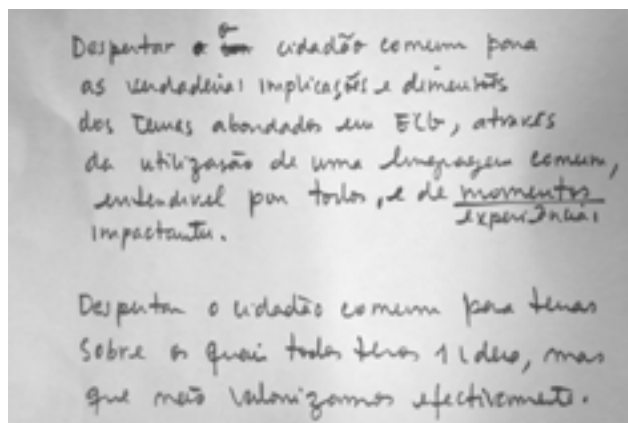 Despertar o cidadão comum para
as verdadeiras implicações e dimensões
dos temas abordados em ECG, através
da utilização de uma linguagem comum,
entendível por todos, e de momentos
experiências
impactantes.
Despertar o cidadão comum para temas
sobre os quais todos temos 1 ideia, mas
que não valorizamos efectivamente.